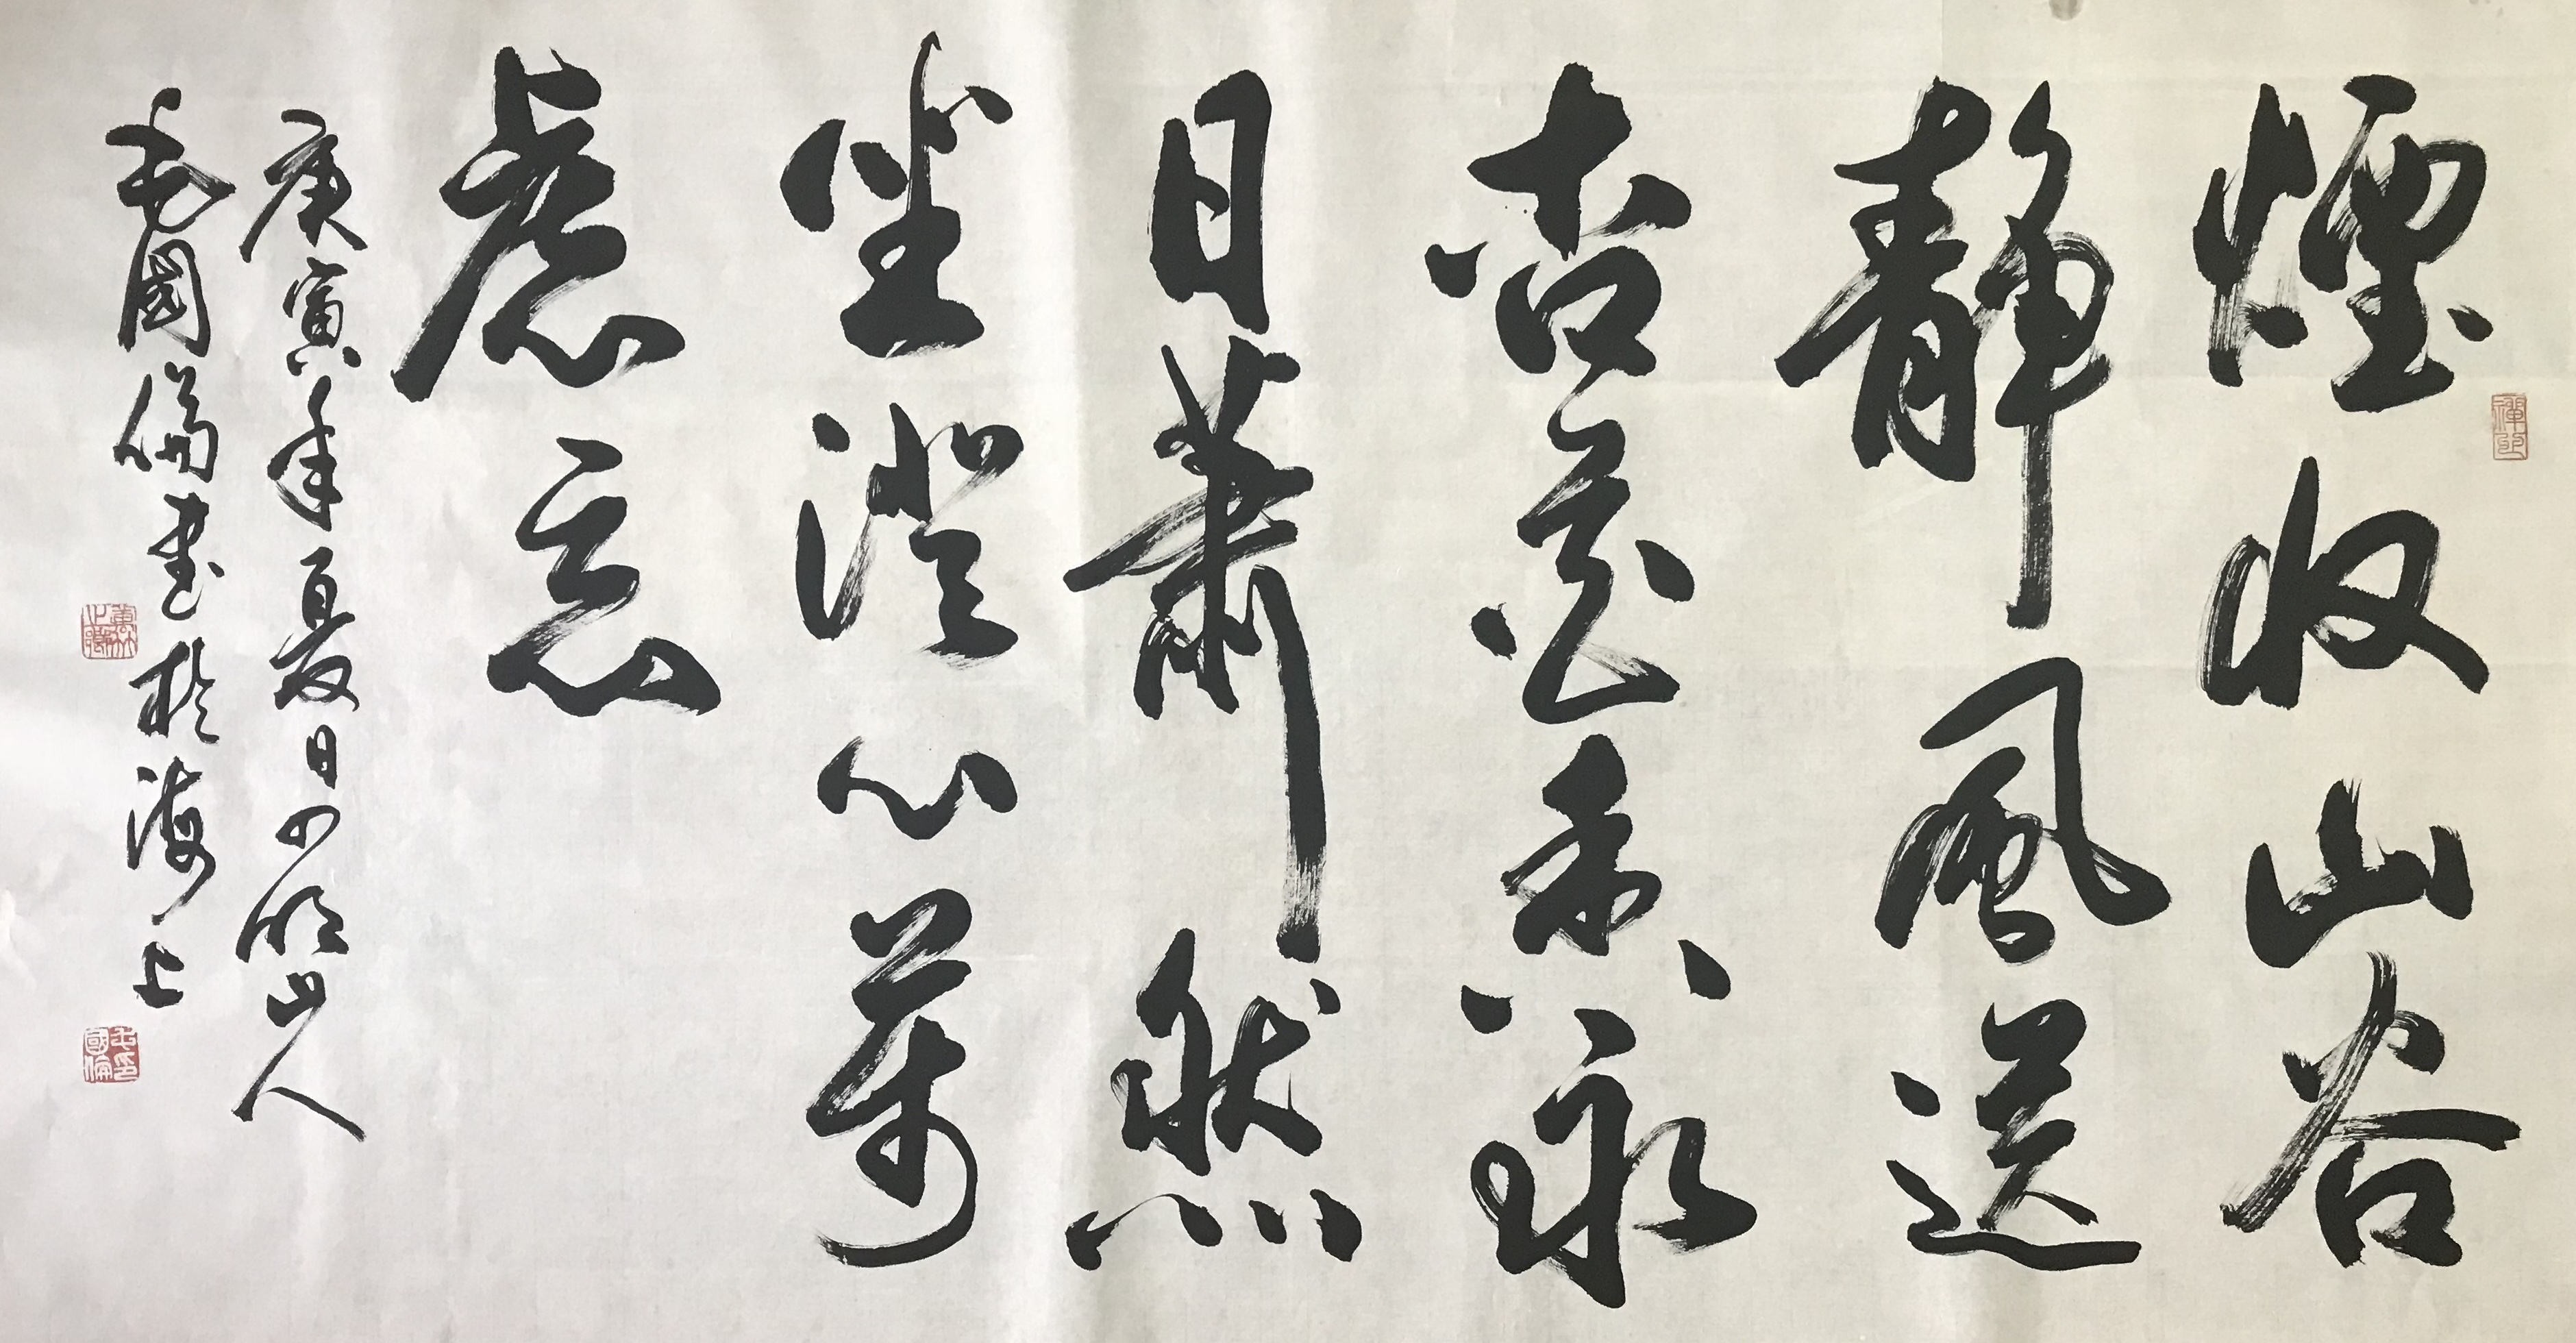 煙收山谷
靜風送
杏花香永
日蕭然
坐澄心萬
慮忘
庚寅年夏日四明山人
毛國倫書於海上